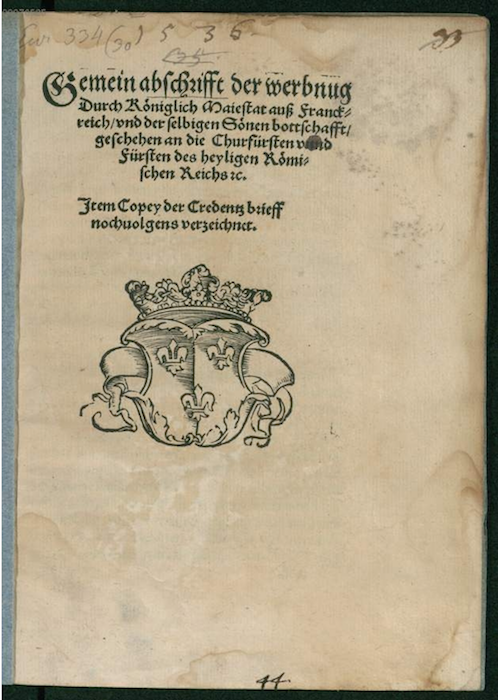 334 (30) 5 3 6
33
Gemein abschrifft der werbnug
Durch Königlich Maiestat auß Franck-
reich/ vnd der selbigen Sönen bottschafft/
geschehen an die Churfürsten vnnd
Fürsten des heyligen Römi-
schen Reichs ꝛc.
Item Copey der Credentz brieff
nochuolgens verzeichnet.
44.